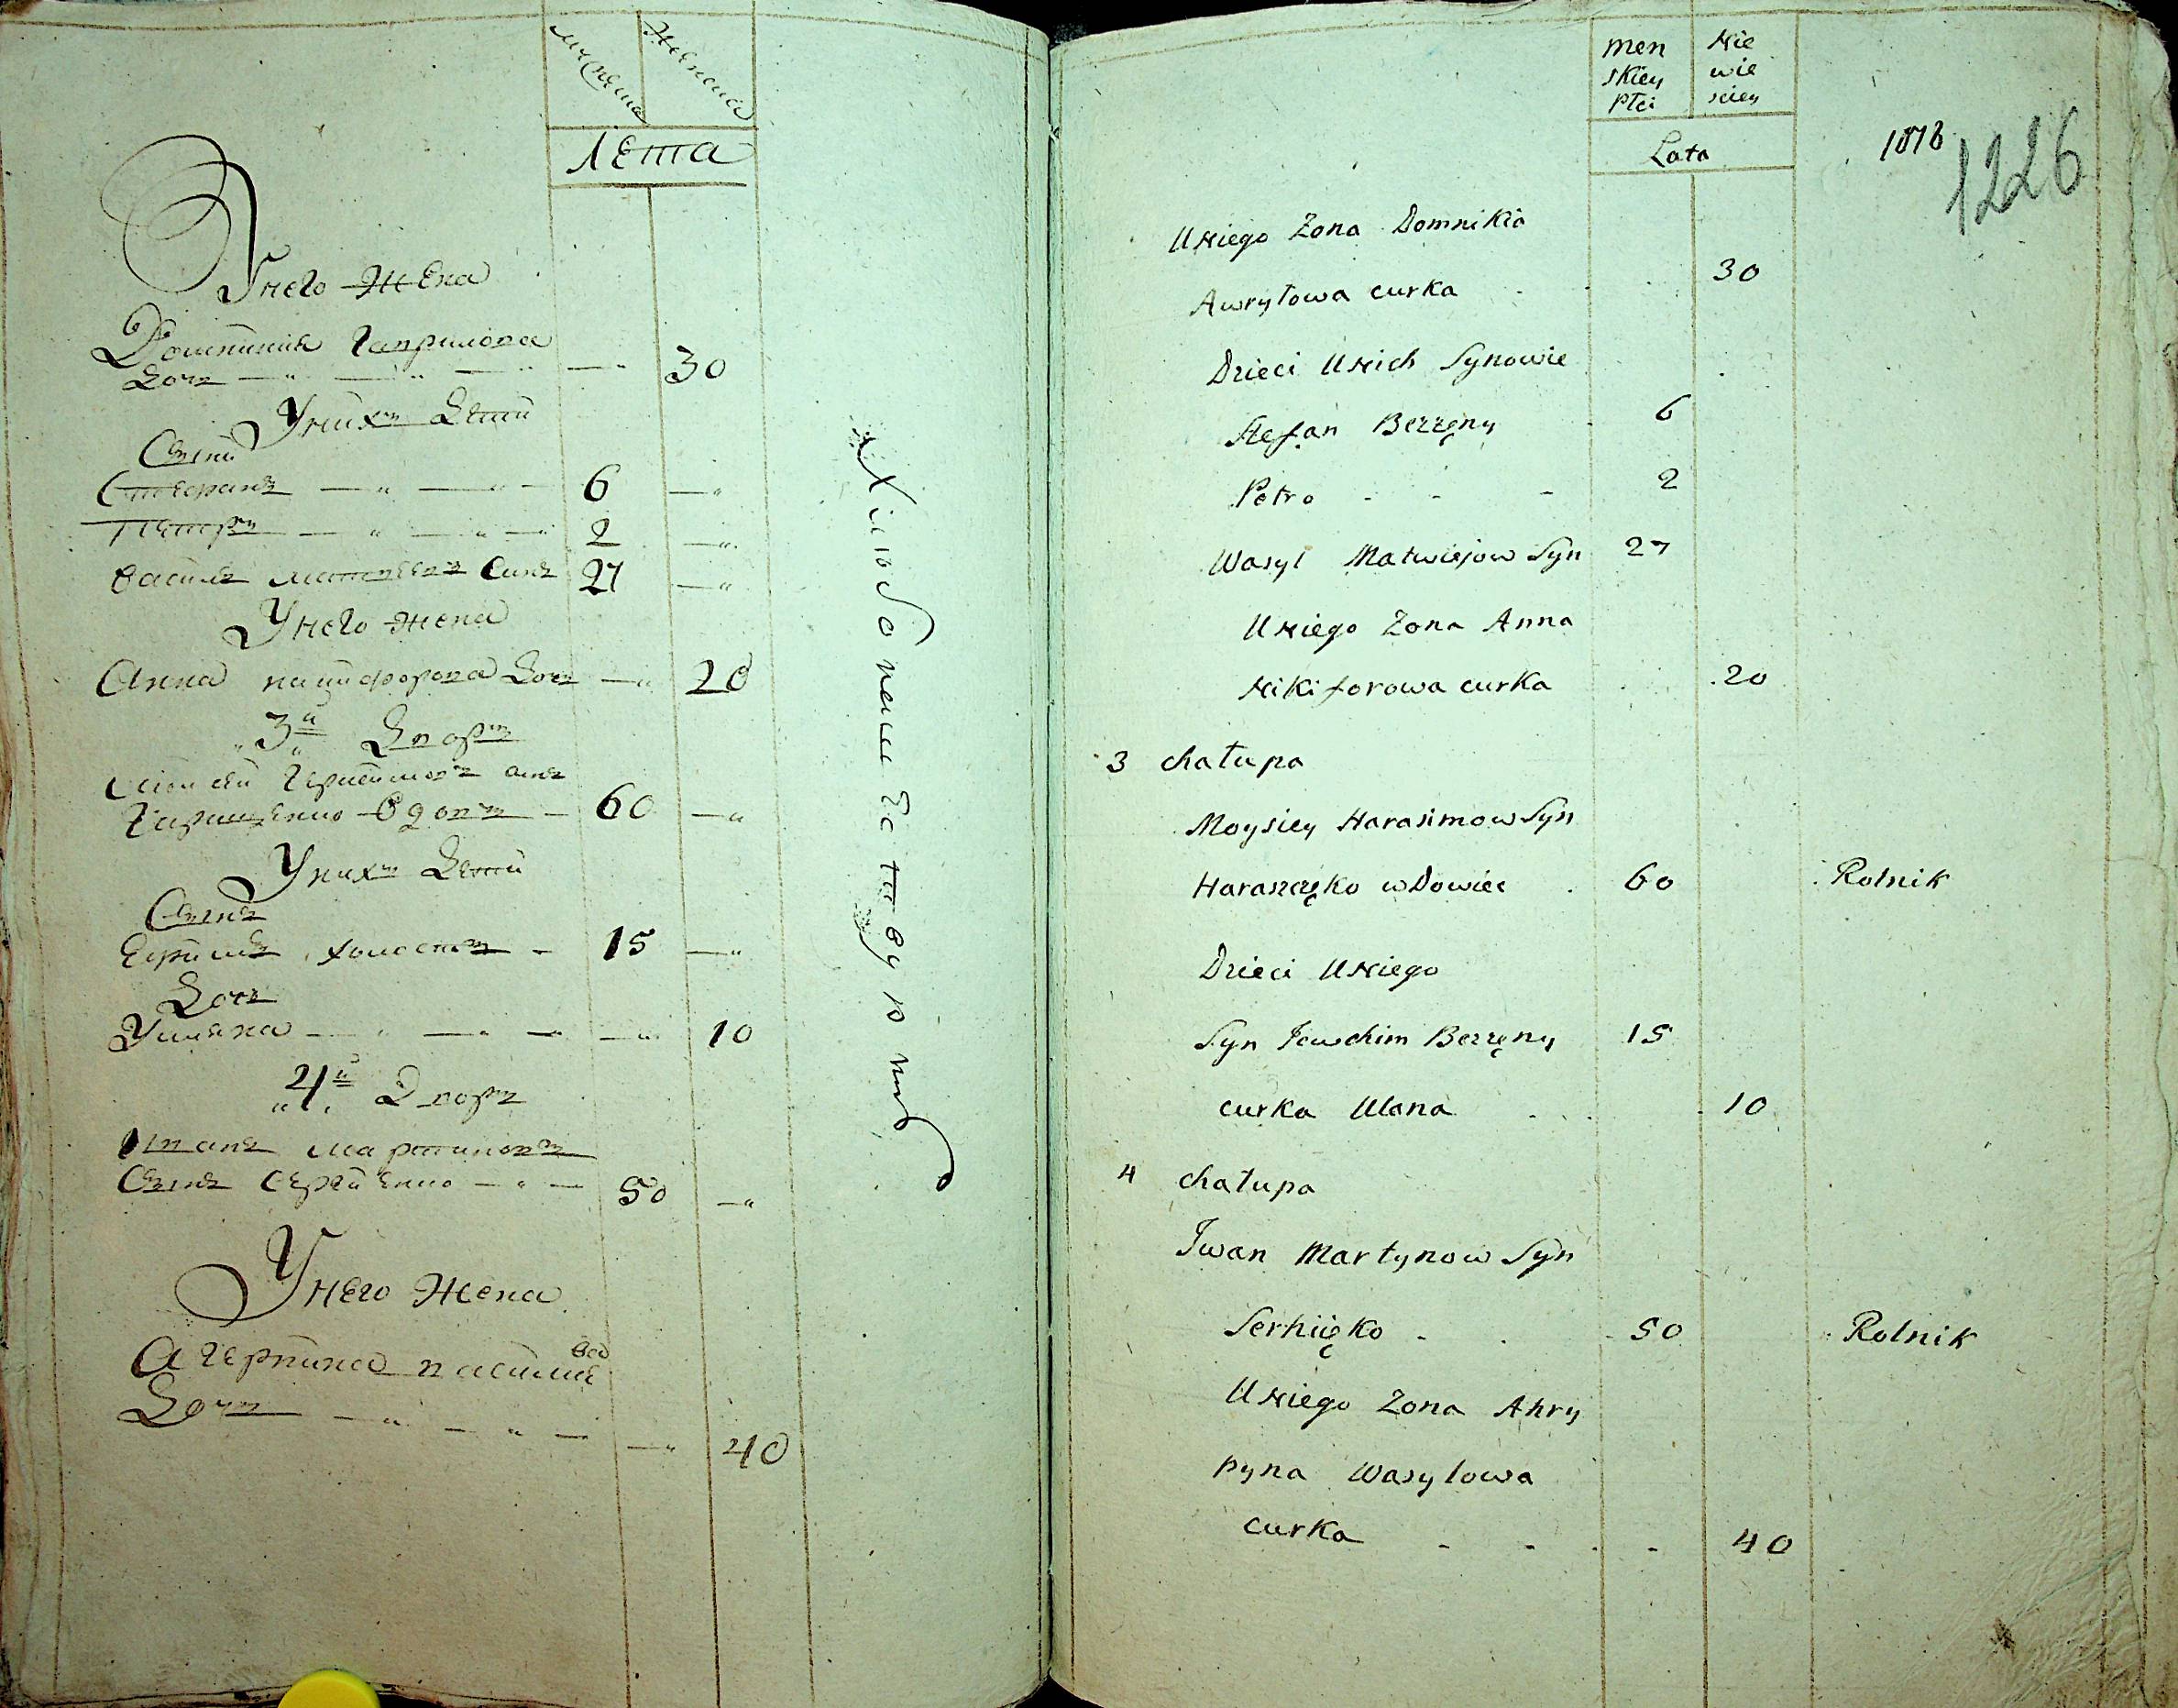 мужеска
женска
Лета
У него жена
Домникия Гаврилова
дочь 30
У них дети
Сыны
Стефанъ 6
Петръ 2
Василь Матвеевъ сынъ 27
У него жена
Анна Никифорова дочь 20
3й Дворъ
Мойсей Герасимовъ сынъ
Гаращенко вдовъ 60
У них дети
Сынъ
Ефимъ холостъ 15
Дочь
Уляна 10
4й Дворъ
Иванъ Мартиновъ
Сынъ Сергиенко 50
У него жена
Агерпина Василиева
Дочь 40
Хлебопашествуютъ
men Nie
skiey wie
płci sciey
Lata
1878
1226
U Niego Zona Domnikia
Awryłowa curka 30
Dzieci U Nich Synowie
Stefan Bezzęny 6
Petro 2
Wasyl Matwiejow Syn 27
U Niego Zona Anna
Nikiforowa curka 20
3 chałupa
Moysiey Harasimow Syn
Haraszczęko wdowiec 60 Rolnik
Dzieci U Niego
Syn Jewchim Bezzęny 15
curka Ulana 10
4 chałupa
Jwan Martynow Syn
Serhiięko 50 Rolnik
U Niego Zona Ahry
pyna Wasylowa
curka 40